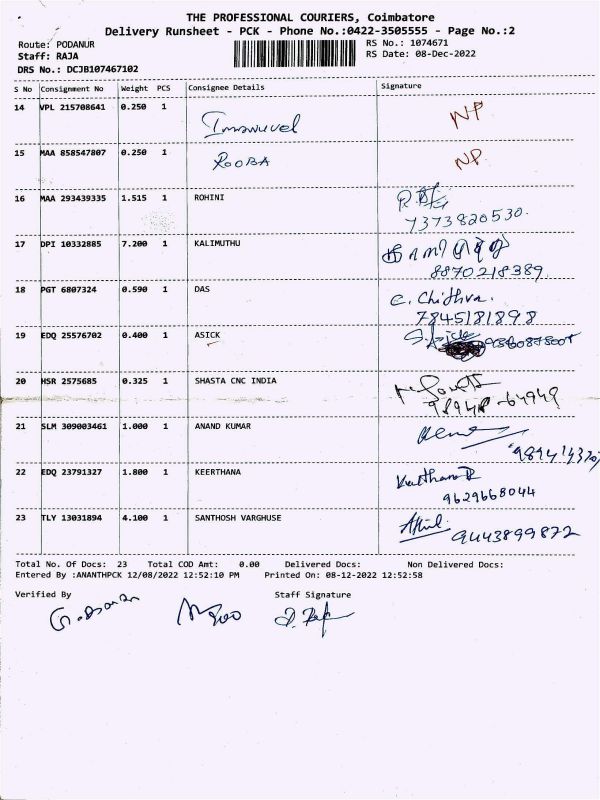 THE PROFESSIONAL COURIERS, Coimbatore
Delivery Runsheet - PCK - Phone No.:0422-3505555 - Page No.:2
Route: PODANUR
RS No.: 1074671
Staff: RAJA
RS Date: 08-Dec-2022
DRS No.: DCJB107467102
S No Consignment No Weight PCS Consignee Details Signature
14 VPL 215708641 0.250 1 Imanuvel NP
15 MAA 858547807 0.250 1 ROOBA NP
16 MAA 293439335 1.515 1 ROHINI
7373820530.
17 DPI 10332885 7.200 1 KALIMUTHU
8870218389
18 PGT 6807324 0.590 1 DAS C. Chithra.
7845181898
19 EDQ 25576702 0.400 1 ASICK
20 HSR 2575685 0.325 1 SHASTA CNC INDIA
98948-64949
21 SLM 309003461 1.000 1 ANAND KUMAR
22 EDQ 23791327 1.800 1 KEERTHANA Keerthana R
9629668044
23 TLY 13031894 4.100 1 SANTHOSH VARGHUSE
9443899872
Total No. Of Docs: 23 Total COD Amt: 0.00 Delivered Docs: Non Delivered Docs:
Entered By :ANANTHPCK 12/08/2022 12:52:10 PM Printed On: 08-12-2022 12:52:58
Verified By Staff Signature